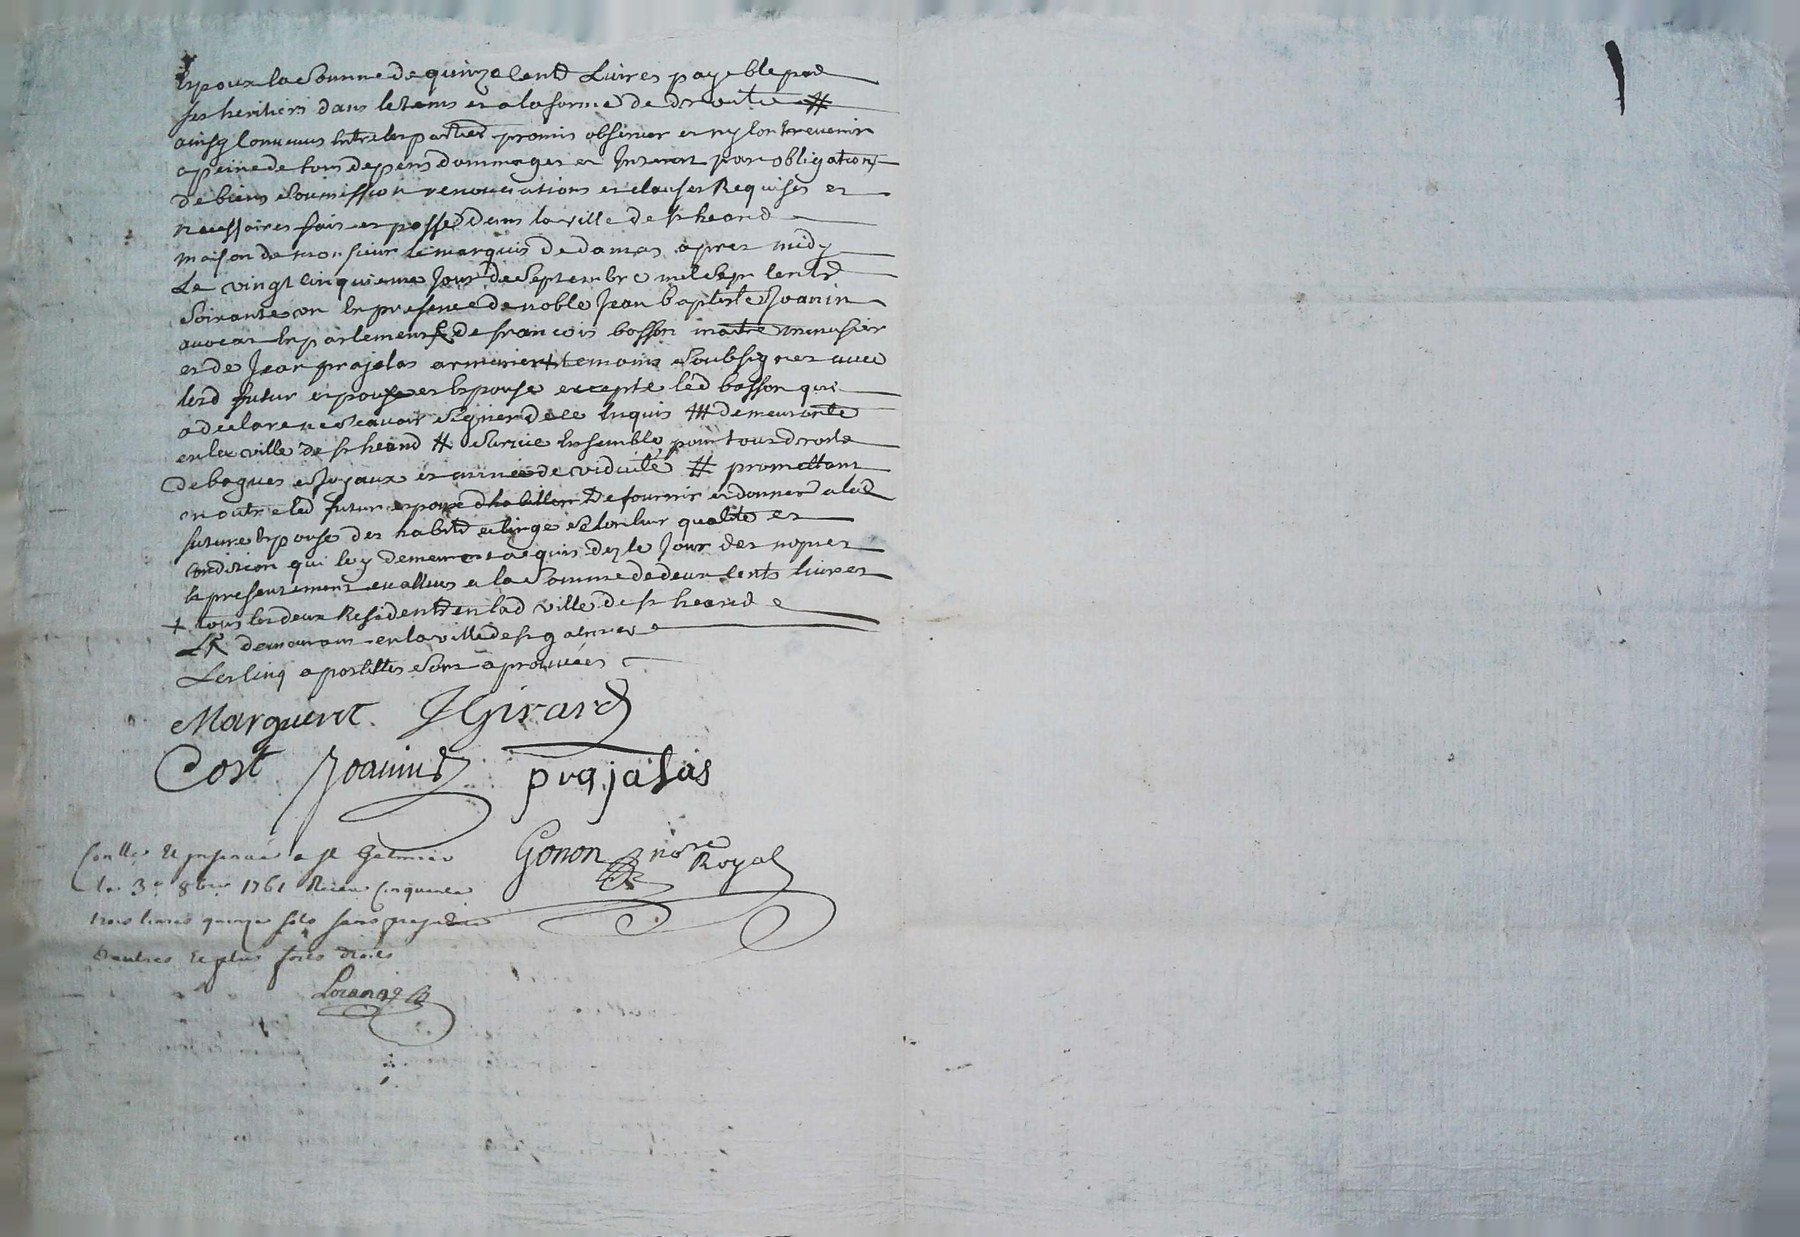 Espoux la Somme de quinze cents Livres payable par
ses heritiers dans le tems et a la forme de droit #
ainsy Convenus Entre les parties promis observer et ny Contrevenir
a peine de tous depens dommages et Interest par obligation
de biens Soumission renonciations et clauses Requises et
necessaires fait et passé dans la ville de st heand
maison de monsieur le marquis de damas apres midy
Le vingt cinquieme Jour de Septembre mil Sept cents
Soixante un En presence de noble Jean baptiste Joanin
avocat En parlement & de francois bosson maitre menusier
et de Jean prajalas armurier + temoins Soubsignes avec
lesd futur espoux et Espouse excepté led bosson qui
a declaré ne Scavoir Signer de ce Enquis ## demeurante
en lad ville de st heand # Survie Ensemble pour tous droits
de bagues et Joyaux et année de viduité # promettant
en outre led futur espoux de fournir et donner a lad
future Espouse des habits et linge Selon leur qualité et
condition qui luy demeureront acquis dez le Jour des nopces
et presentement evalluez a la Somme de deux cents livres
+ tous les deux Residents en lad ville de st heand
demeurant en la ville de st galmier
Les cinq apostilles Sont aprouvées
Marguerit JGirard
Cost Joanin prajalas
Gonon nore Royal
Conllé Et insinué a st Galmier
le 3e 8bre 1761 Receu Cinquante
trois livres quinze sols sans prejudice
d'autres et plus forts droits